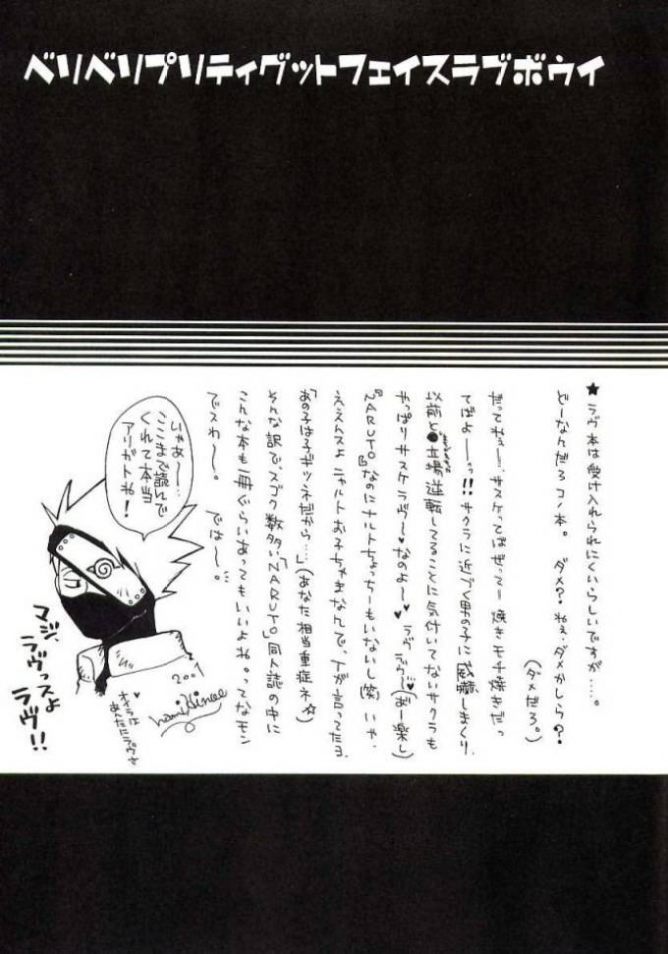 ベリベリプリティグットフェイスラブボウイ
★ラヴ本は受け入れられにくいらしいですが……。
どーなんだろコノ本。ダメ？ねぇ、ダメかしら？
（ダメだろ。）
だってねぇー…サスケってばぜってー焼きモチ焼きだっ
てばよーっ!!サクラに近づく男の子に威嚇しまくり、
以前と立場逆転してることに気付いてないサクラも
やっぱりサスケラヴ〜なのよ〜♥ラヴラヴ〜♥（あー楽し）
『NARUTO』なのにナルトちょっちーもいないし（笑）いや、
ええんスよニャルトお子ちゃまなんで、Tが言ってたョ
「あの子は子ギツネだから…」（あなた相当重症ネ☆）
そんな訳で、スゴク数多い「NARUTO」同人誌の中に
こんな本も一冊ぐらいあってもいいよね。ってなモン
でスわ〜。では〜。
いゃあ〜…
ここまで読んで
くれて本当
アリガトね！
マジ、
ラヴっスよ
ラヴ!!
オイラは
あんたにラヴさ♥
200